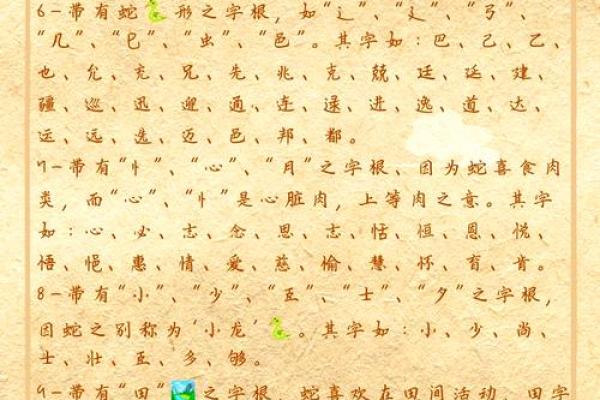 6-带有蛇形之字根，如“辶”、“廴”、“弓”、
“几”、“巳”、“虫”、“邑”。其字如：巴、己、乙、
也、允、充、兄、先、兆、克、兢、廷、延、建、
疆、巡、迅、迎、通、连、逯、进、逸、道、达、
运、远、选、迈、邑、邦、都。
7-带有“忄”、“心”、“月”之字根、因为蛇喜食肉
类，而“心”、“忄”是心脏肉，上等肉之意。其字
如：心、必、志、念、思、志、恬、恒、恩、悦、
悟、悒、惠、情、爱、慈、愉、慧、怀、育、肯。
8-带有“小”、“少”、“臣”、“士”、“夕”之字根，
因蛇之别称为‘小龙’。其字如：小、少、尚、
士、壮、臣、多、够。
9-带有“田”之字根，蛇喜欢在田间活动，田字